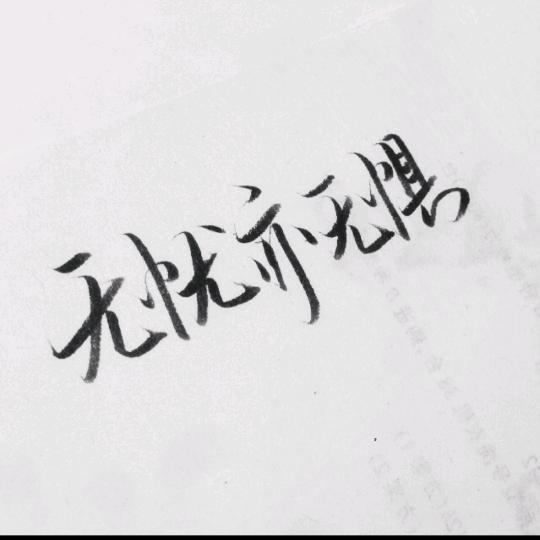 无忧亦无惧